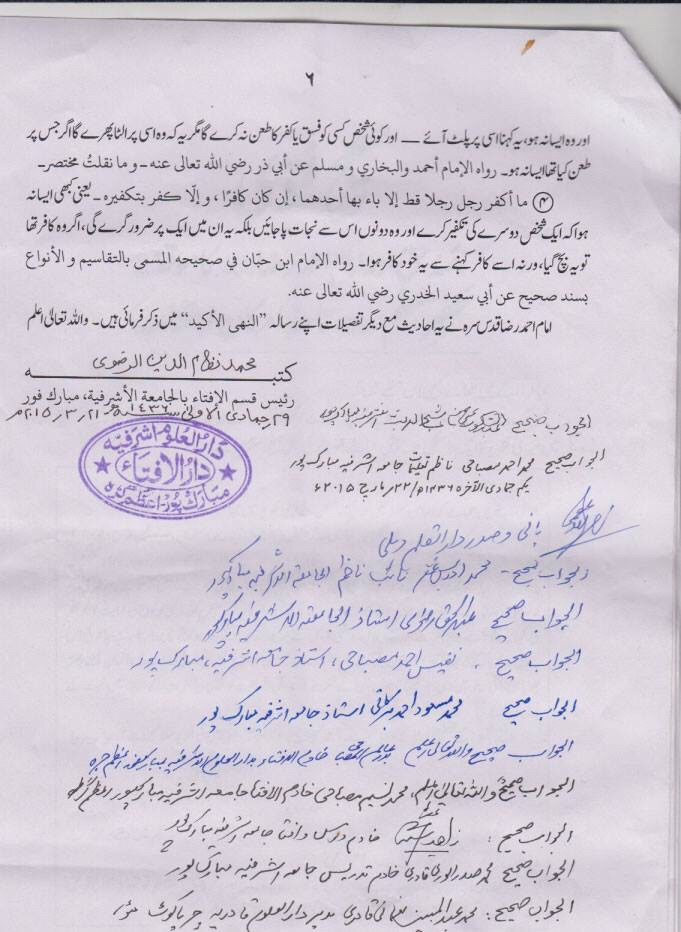 ۶
اور وہ ایسا نہ ہو، یہ کہنا اسی پر پلٹ آئے ــــ اور کوئی شخص کسی کو فسق یا کفر کا طعن نہ کرے گا مگر یہ کہ وہ اسی پر الٹا پھرے گا اگر جس پر
طعن کیا تھا ایسا نہ ہو۔ رواه الإمام أحمد والبخاري و مسلم عن أبي ذر رضي الله تعالى عنه ـ و ما نقلتُ مختصر ـ
④ ما أكفر رجل رجلا قط إلا باء بها أحدهما ، إن كان كافرًا ، و إلّا كفر بتكفيره ـ یعنی کبھی ایسا نہ
ہوا کہ ایک شخص دوسرے کی تکفیر کرے اور وہ دونوں اس سے نجات پا جائیں بلکہ یہ ان میں ایک پر ضرور گرے گی، اگر وہ کافر تھا
تو یہ بچ گیا، ورنہ اسے کافر کہنے سے یہ خود کافر ہوا۔ رواه الإمام ابن حبّان في صحيحه المسمى بالتقاسيم و الأنواع
بسند صحيح عن أبي سعيد الخدري رضي الله تعالى عنه.
امام احمد رضا قدس سرہ نے یہ احادیث مع دیگر تفصیلات اپنے رسالہ "النهي الأكيد" میں ذکر فرمائی ہیں۔ واللہ تعالیٰ اعلم
محمد نظام الدین الرضوی
كتبـــــــه
رئيس قسم الإفتاء بالجامعة الأشرفية، مبارك فور
۲۹ جمادی الاولیٰ ۱۴۳۶ھ ۲۱/۳/۲۰۱۵م
دارالعلوم اشرفیہ
دارالافتاء
مبارک پور۔ اعظم گڑھ
الجواب صحیح
الجواب صحیح محمد احمد مصباحی ناظم تعلیمات جامعہ اشرفیہ مبارک پور
یکم جمادی الآخرہ ۱۴۳۶ھ/۲۲ مارچ ۲۰۱۵ء
بانی و صدر دارالقلم دہلی
الجواب صحیح۔ محمد ادریس نائب ناظم الجامعۃ الاشرفیہ مبارکپور
الجواب صحیح عبدالحق رضوی استاذ الجامعۃ الاشرفیہ مبارکپور
الجواب صحیح ۔ نفیس احمد مصباحی، استاذ جامعہ اشرفیہ، مبارک پور
الجواب صحیح محمد مسعود احمد برکاتی استاذ جامعہ اشرفیہ مبارک پور
الجواب صحیح واللہ تعالیٰ اعلم بدر عالم المصباحی خادم الافتاء بدارالعلوم الاشرفیہ مبارکفور اعظم جرہ
الجواب صحیح واللہ تعالیٰ اعلم، محمد نسیم مصباحی خادم الافتا جامعہ اشرفیہ مبارکپور اعظم گڑھ
الجواب صحیح: خادم درس و افتا جامعہ اشرفیہ مبارک پور
الجواب صحیح محمد صدر الوری قادری خادم تدریس جامعہ اشرفیہ مبارک پور
الجواب صحیح: محمد عبدالمبین نعمانی قادری دارالعلوم قادریہ چریاکوٹ مئو